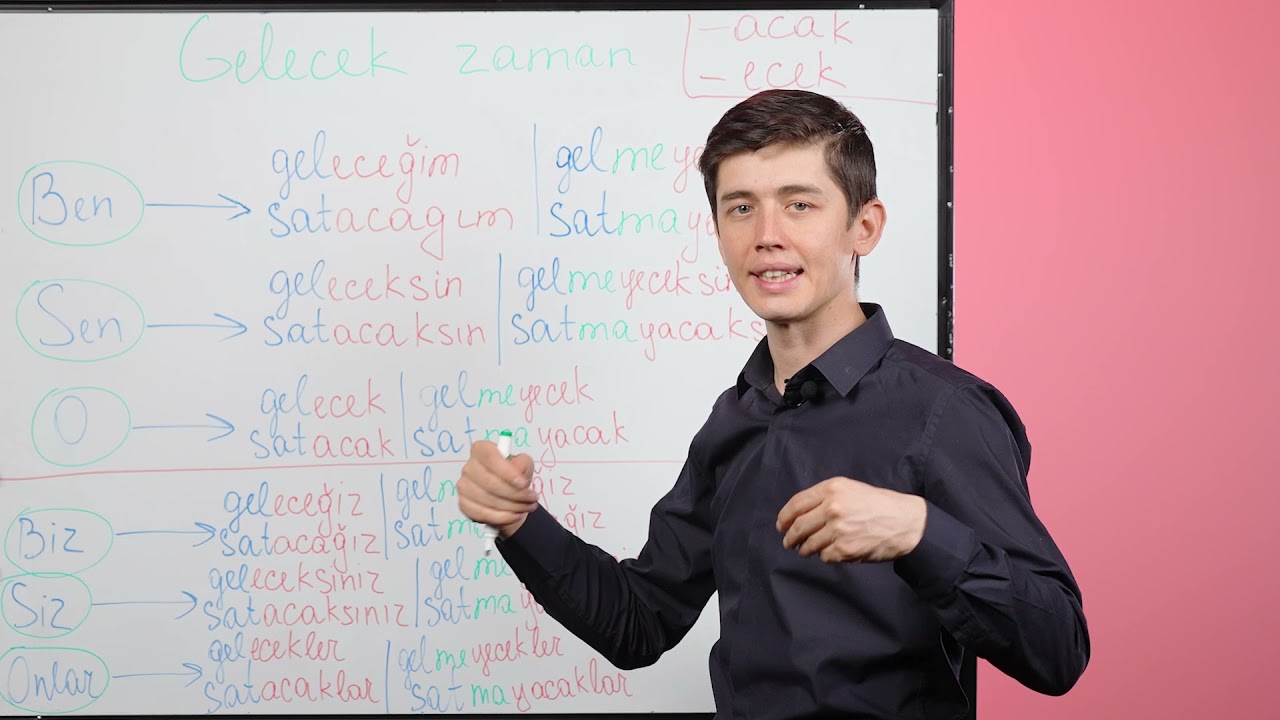 Gelecek zaman
-acak
-ecek
Ben
geleceğim
satacagım
Sen
geleceksin | gelmeyeceksin
satacaksın
O
gelecek | gelmeyecek
satacak | satmayacak
Biz
geleceğiz
satacağız
Siz
geleceksiniz
satacaksınız
Onlar
gelecekler | gelmeyecekler
satacaklar | satmayacaklar